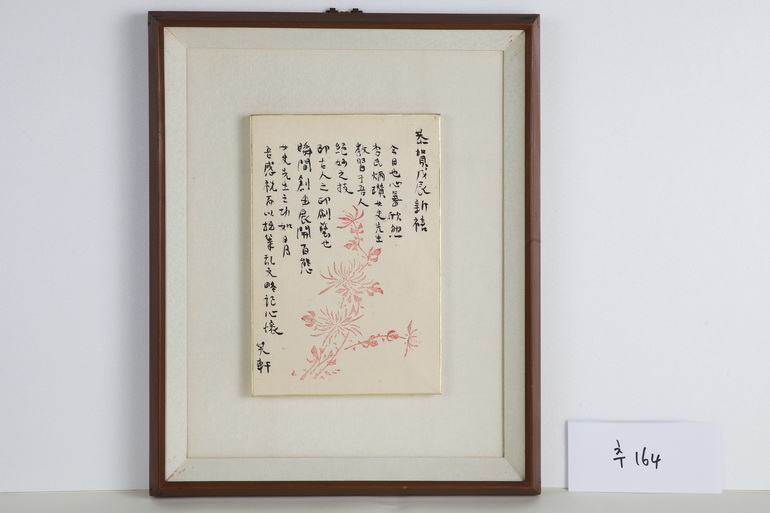 恭賀戊辰新禧
今日也心筆欣然
李氏炳讚女史先生
教習于吾人
絕妙之技
即古人之印刷藝也
瞬間創出展開百態
女史先生之功如日月
吾感祝而以拙筆記文略記心懷
笑軒
추 164